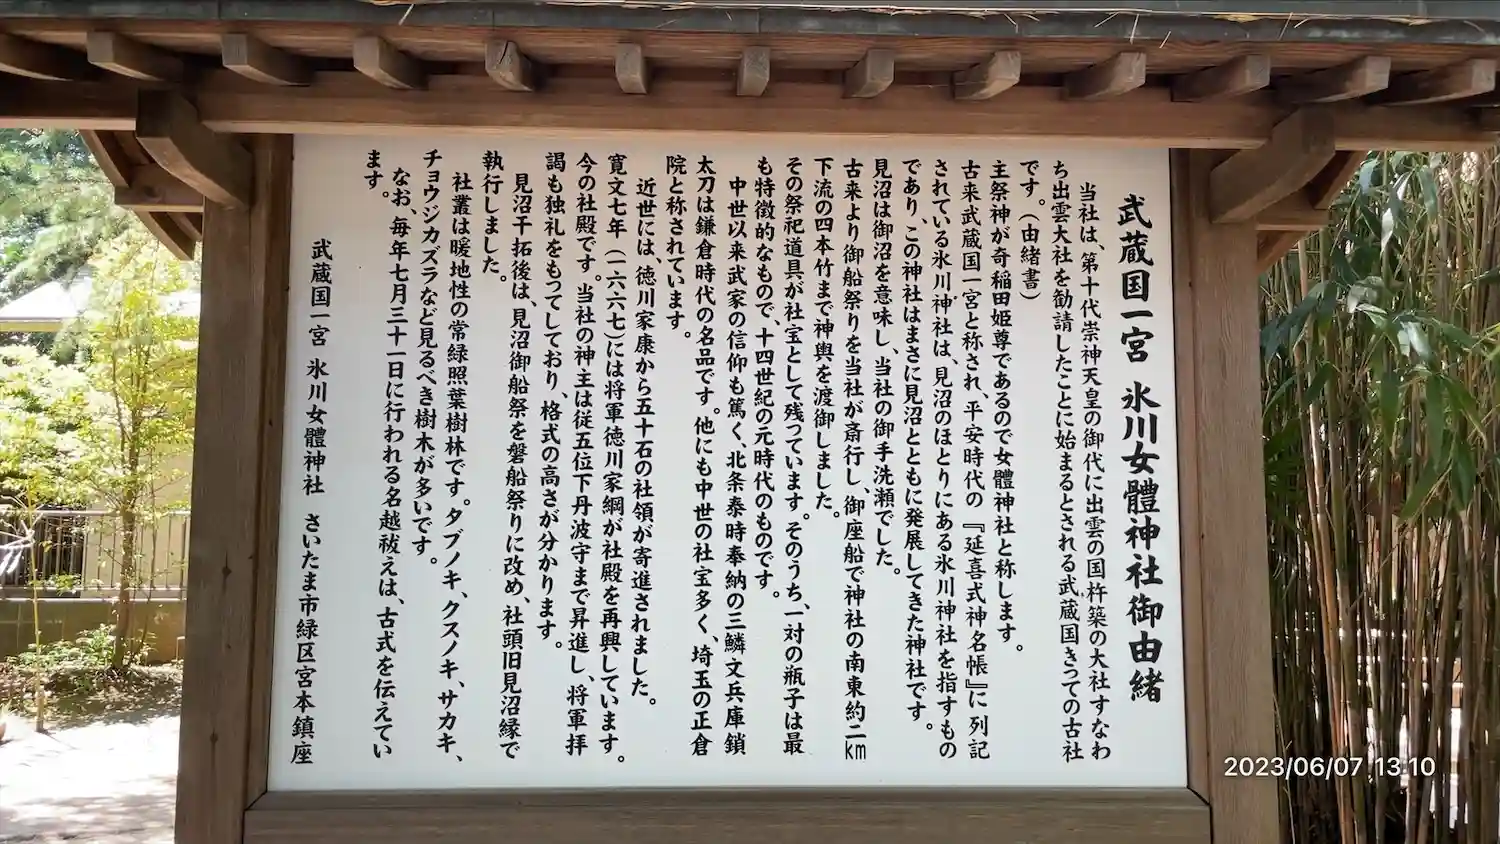 武蔵国一宮 氷川女體神社御由緒
当社は、第十代崇神天皇の御代に出雲の国杵築の大社すなわ
ち出雲大社を勧請したことに始まるとされる武蔵国きっての古社
です。(由緒書)
主祭神が奇稲田姫尊であるので女體神社と称します。
古来武蔵国一宮と称され、平安時代の『延喜式神名帳』に列記
されている氷川神社は、見沼のほとりにある氷川神社を指すもの
であり、この神社はまさに見沼とともに発展してきた神社です。
見沼は御沼を意味し、当社の御手洗瀬でした。
古来より御船祭りを当社が斎行し、御座船で神社の南東約二km
下流の四本竹まで神輿を渡御しました。
その祭祀道具が社宝として残っています。そのうち、一対の瓶子は最
も特徴的なもので、十四世紀の元時代のものです。
中世以来武家の信仰も篤く、北条泰時奉納の三鱗文兵庫鎖
太刀は鎌倉時代の名品です。他にも中世の社宝多く、埼玉の正倉
院と称されています。
近世には、徳川家康から五十石の社領が寄進されました。
寛文七年(一六六七)には将軍徳川家綱が社殿を再興しています。
今の社殿です。当社の神主は従五位下丹波守まで昇進し、将軍拝
謁も独礼をもってしており、格式の高さが分かります。
見沼干拓後は、見沼御船祭を磐船祭りに改め、社頭旧見沼縁で
執行しました。
社叢は暖地性の常緑照葉樹林です。タブノキ、クスノキ、サカキ、
チョウジカズラなど見るべき樹木が多いです。
なお、毎年七月三十一日に行われる名越祓えは、古式を伝えてい
ます。
武蔵国一宮 氷川女體神社 さいたま市緑区宮本鎮座
2023/06/07 13:10